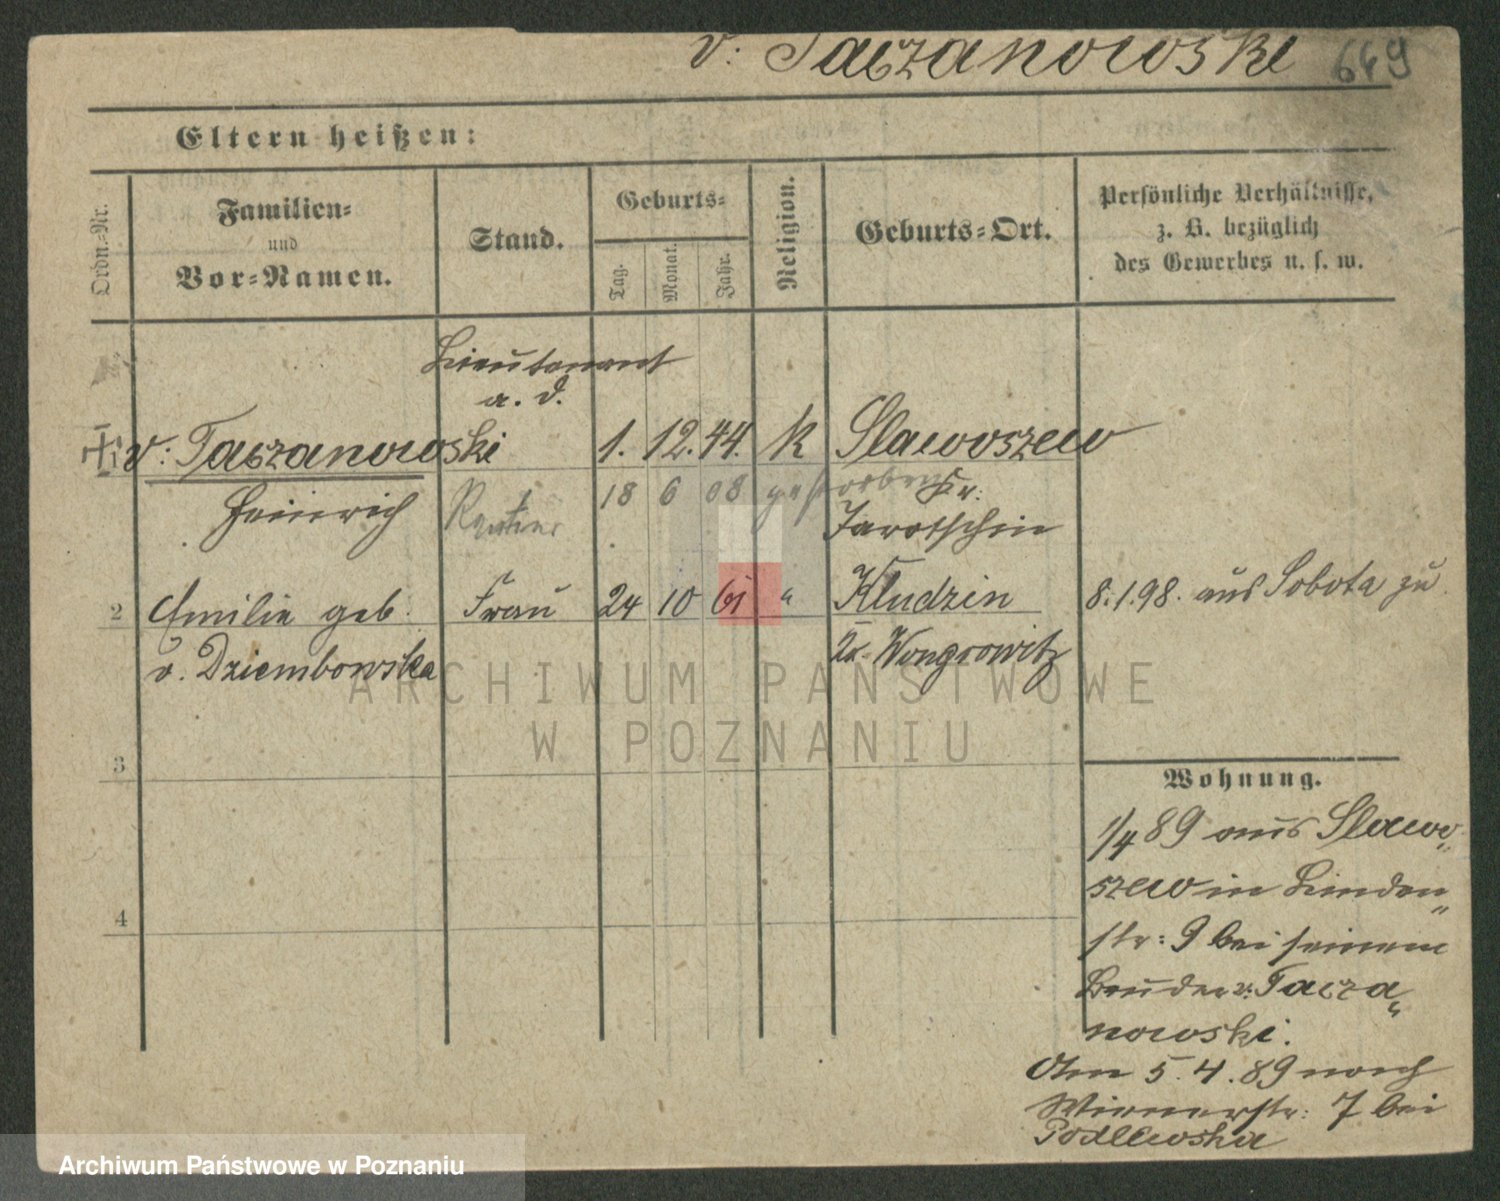 v. Taczanowski 649
Eltern heißen:
Ordn.-Nr.
Familien-
und
Vor-Namen.
Stand.
Geburts-
Tag.
Monat.
Jahr.
Religion.
Geburts-Ort.
Persönliche Verhältnisse,
z. B. bezüglich
des Gewerbes u. s. w.
Lieutenant
a. D.
1 v. Taczanowski 1. 12. 44. K Slawoszew
Heinrich Rentner 18 6 08 gestorben Kr.
Jarotschin
2 Emilie geb. Frau 24 10 61 " Kludzin 8.1.98. aus Sobota zu
v. Dziembowska Kr. Wongrowitz
3
4
Wohnung.
1/4 89 aus Slawo„
szew in Linden„
str: 9 bei seinem
Bruder v. Tacza„
nowski.
Am 5.4.89 nach
Wienerstr: 7 bei
Podlewska
ARCHIWUM PAŃSTWOWE
W POZNANIU
Archiwum Państwowe w Poznaniu